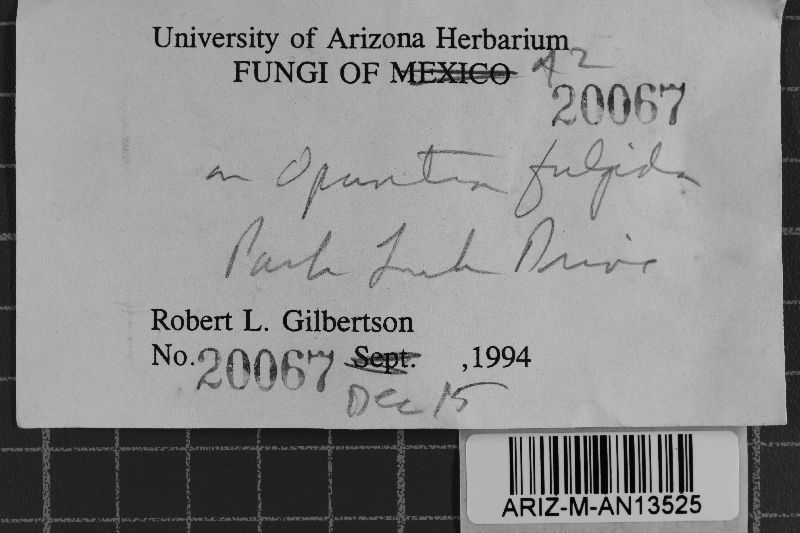 University of Arizona Herbarium
FUNGI OF MEXICO AZ
20067
on Opuntia fulgida
Park Link Drive
Robert L. Gilbertson
No. 20067 Sept. , 1994
Dec 15
ARIZ-M-AN13525